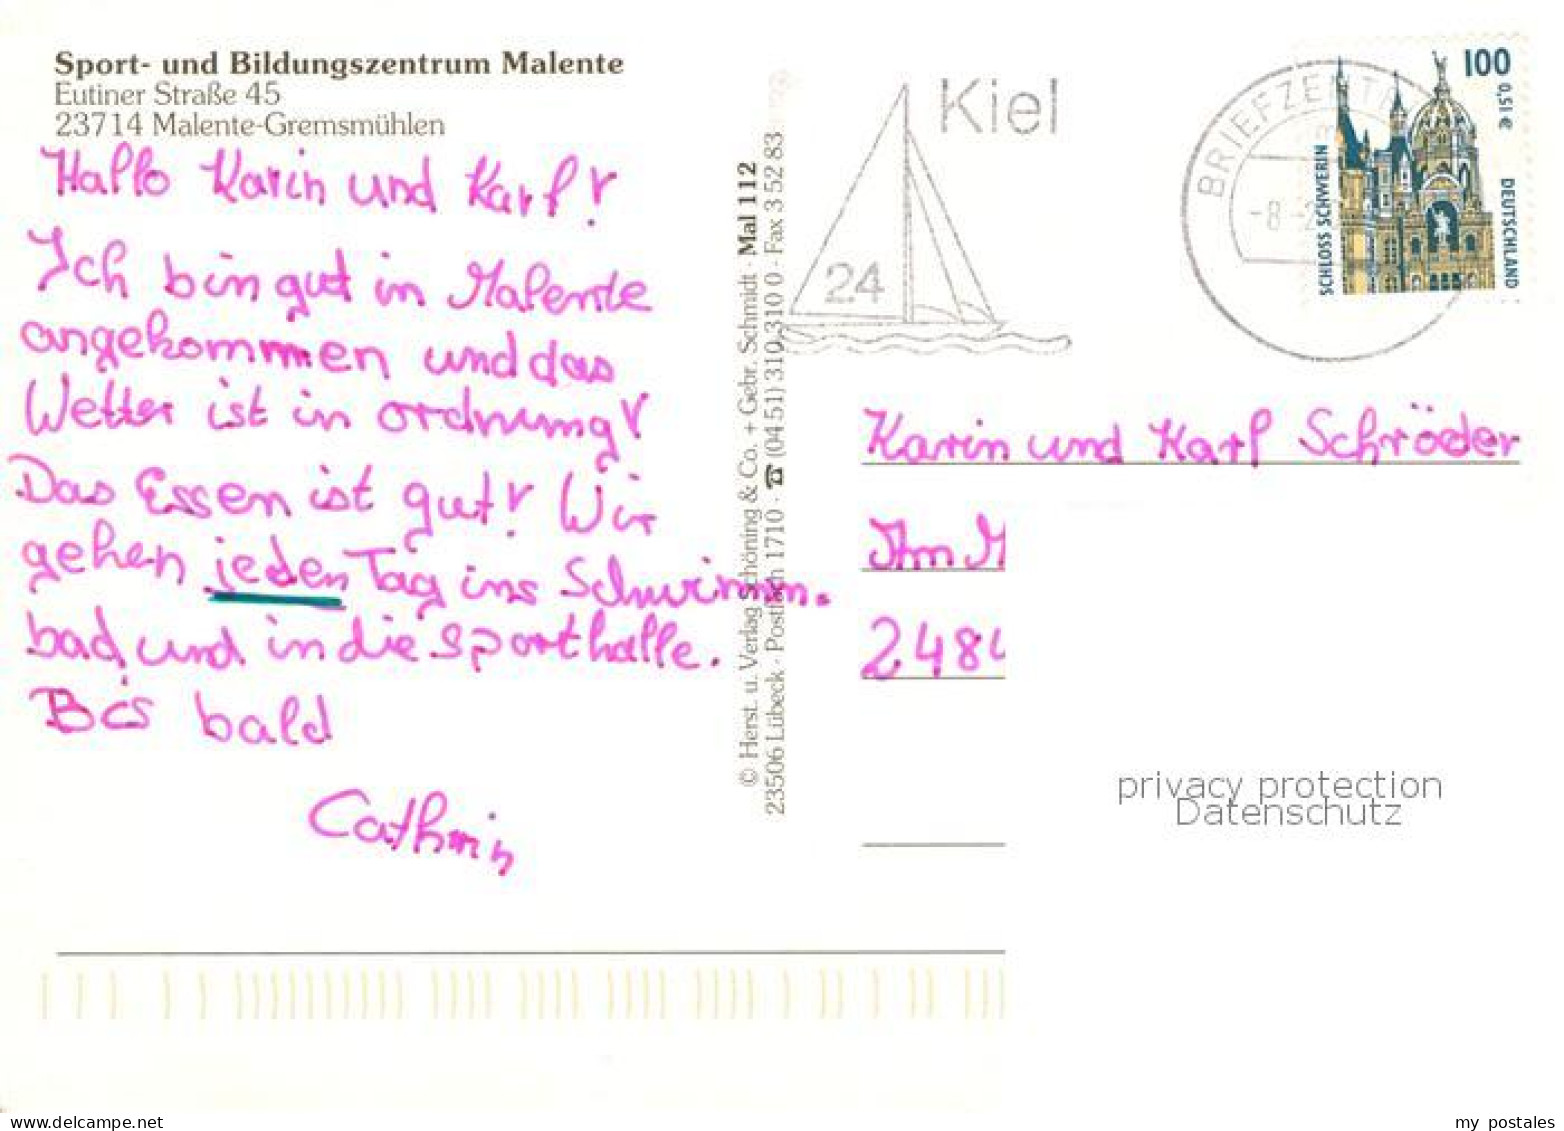 Sport- und Bildungszentrum Malente
Eutiner Straße 45
23714 Malente-Gremsmühlen
Hallo Karin und Karl!
Ich bin gut in Malente
angekommen und das
Wetter ist in ordnung!
Das Essen ist gut! Wir
gehen jeden Tag ins Schwimm-
bad, und in die Sporthalle.
Bis bald
Cathrin
© Herst. u. Verlag Schöning & Co. + Gebr. Schmidt · Mal 112
23506 Lübeck · Postfach 1710 · ☎ (04 51) 310 310 0 · Fax 3 52 83
Kiel
24
BRIEFZENTR
-8.-2
100
0,51 €
SCHLOSS SCHWERIN
DEUTSCHLAND
Karin und Karl Schröder
Ihm
248
privacy protection
Datenschutz
www.delcampe.net
my_postales